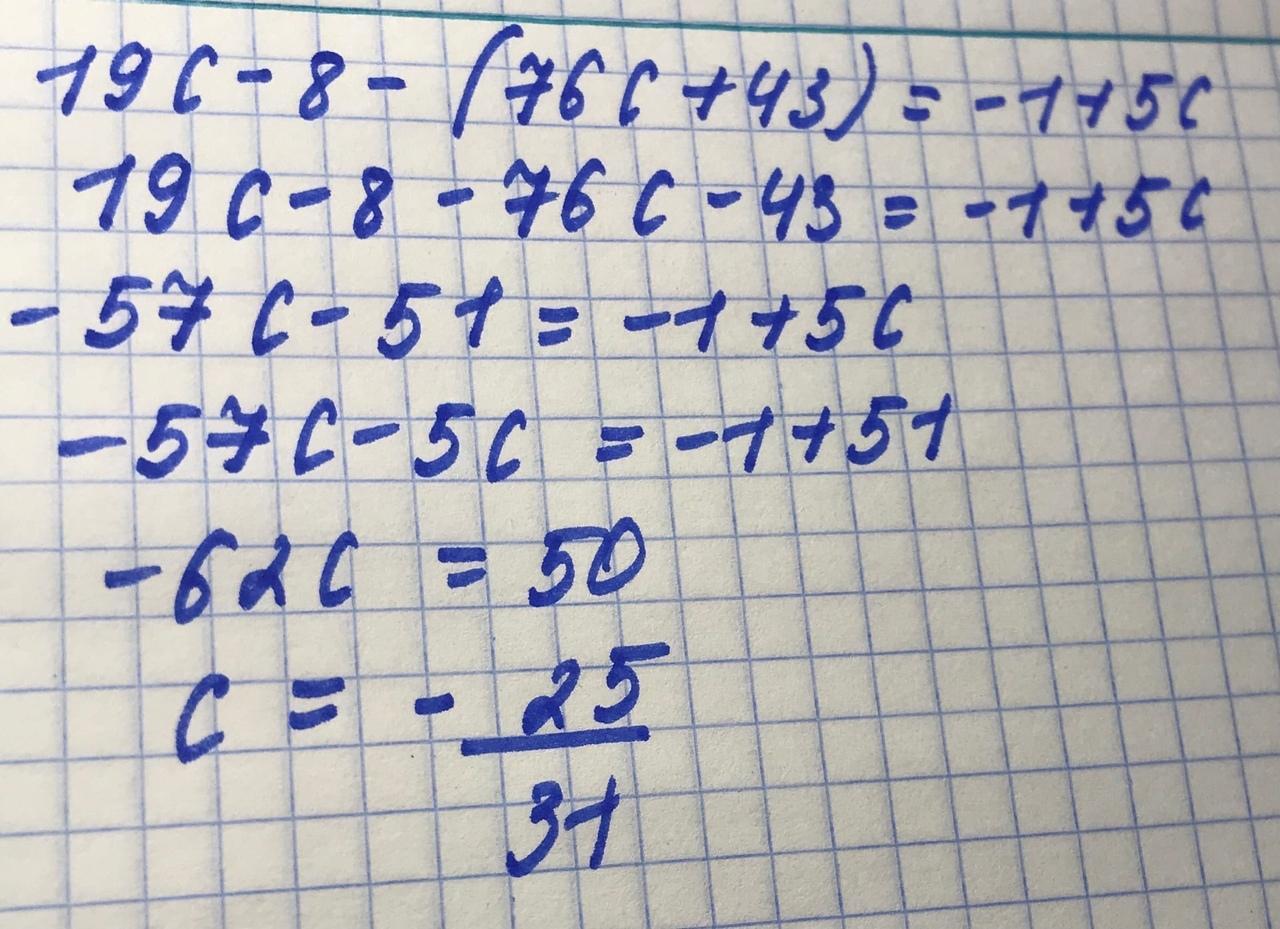 19c - 8 - (76c + 43) = -1 + 5c
19c - 8 - 76c - 43 = -1 + 5c
-57c - 51 = -1 + 5c
-57c - 5c = -1 + 51
-62c = 50
c = - 25
31